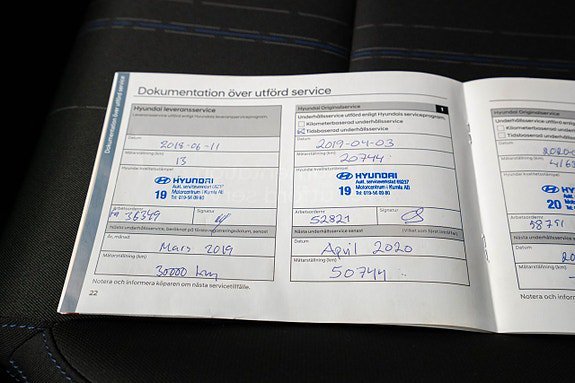 Dokumentation över utförd service
Dokumentation över utförd service
Hyundai leveransservice
Leveransservice utförd enligt Hyundais leveransserviceprogram.
Datum
2018-06-11
Mätarställning (km)
13
Hyundai kvalitetsstämpel
HYUNDAI
19 Aukt. serviceverkstad 69237
Motorcentrum i Kumla AB
Tel: 019-58 09 80
Arbetsordernr
36349
Signatur
Nästa underhållsservice, beräknat på första registreringsdatum, senast
År, månad
Mars 2019
Mätarställning (km)
30000 km
Notera och informera köparen om nästa servicetillfälle.
22
Hyundai Originalservice
1
Underhållsservice utförd enligt Hyundais serviceprogram.
Kilometerbaserad underhållsservice
Tidsbaserad underhållsservice
Datum
2019-04-03
Mätarställning (km)
20744
Hyundai kvalitetsstämpel
HYUNDAI
19 Aukt. serviceverkstad 69237
Motorcentrum i Kumla AB
Tel: 019-58 09 80
Arbetsordernr
52821
Signatur
Nästa underhållsservice senast
(Vilket som först inträffar)
Datum
April 2020
Mätarställning (km)
50744
Hyundai Originalservice
Underhållsservice utfö
Kilometerbaserad
Tidsbaserad und
Datum
2020
Mätarställning (km)
4163
Hyundai kvalitetsstämpel
20
Arbetsordernr
58751
Nästa underhållsservice
Datum
20
Mätarställning (km)
Notera och informera